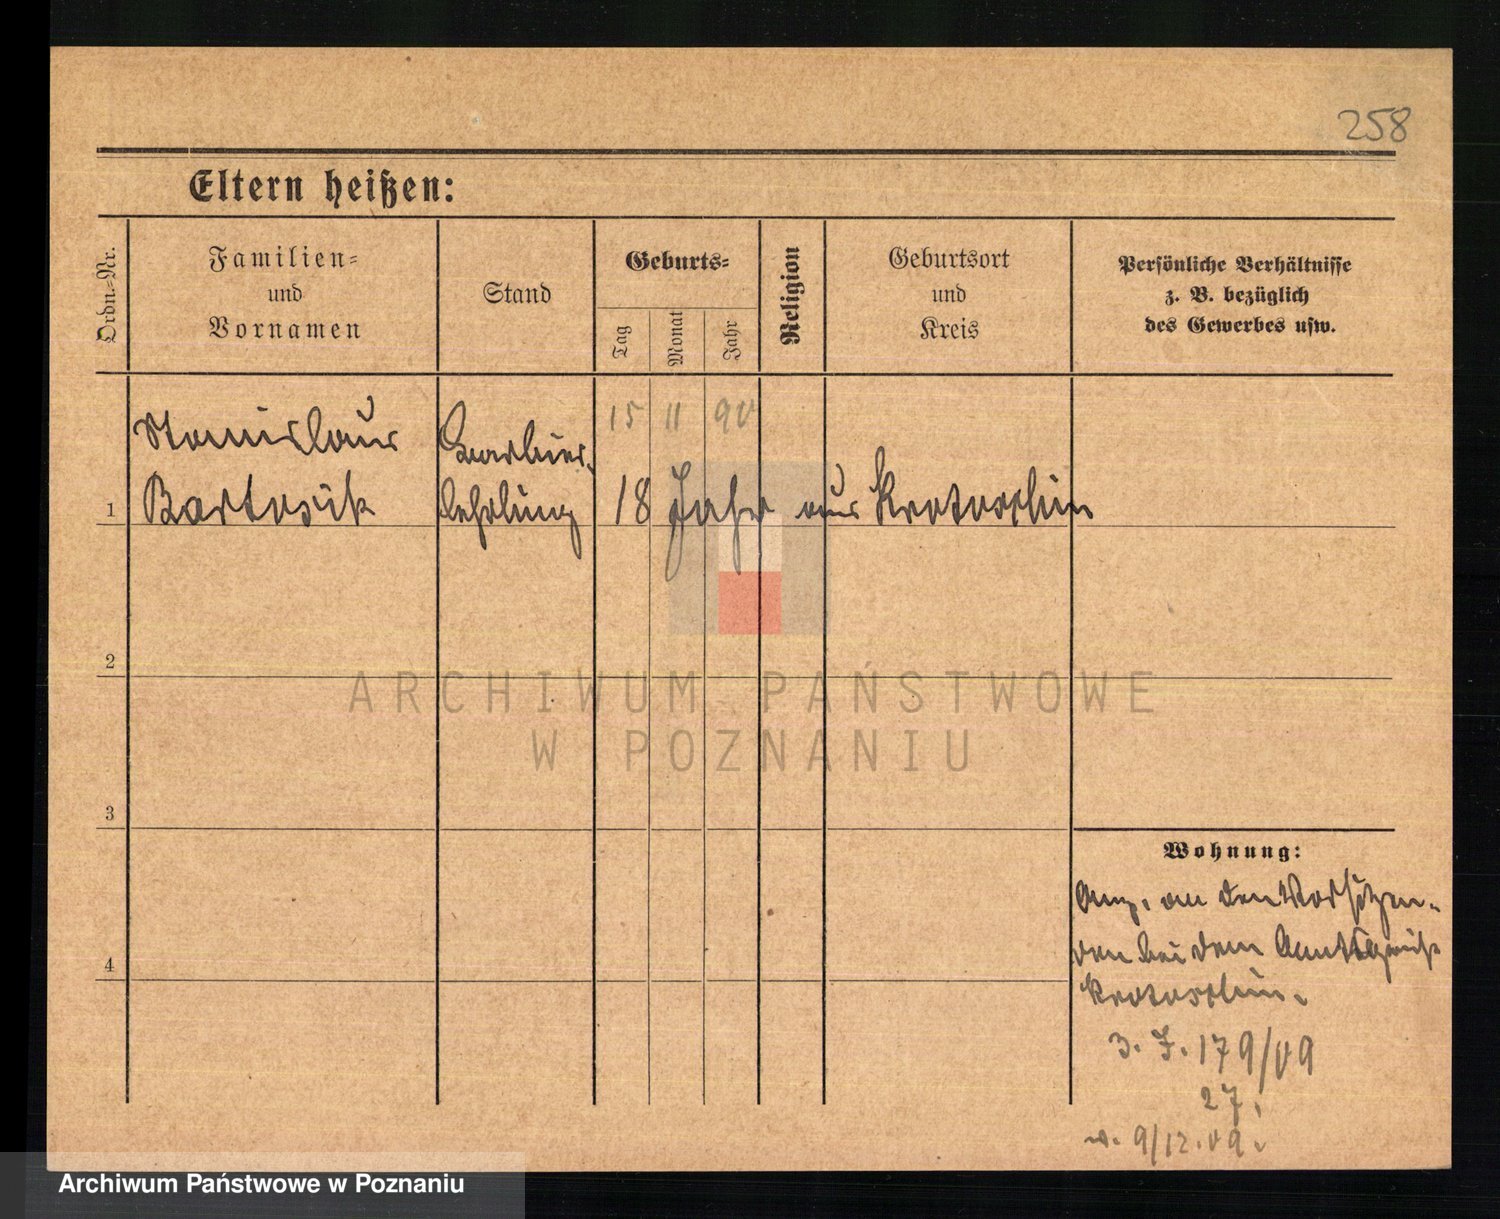 258
Eltern heißen:
Ordn.-Nr.
Familien-
und
Vornamen
Stand
Geburts-
Tag
Monat
Jahr
Religion
Geburtsort
und
Kreis
Persönliche Verhältnisse
z. B. bezüglich
des Gewerbes usw.
15 11 90
Stanislaus Barbier-
1 Bartosik lehrling 18 Jahr aus Krotoschin
2
ARCHIWUM PAŃSTWOWE
W POZNANIU
3
Wohnung:
an den Vorsitzen-
4 den bei dem Amtsgericht
Krotoschin.
3. J. 179/09
27.
9/12.09.
Archiwum Państwowe w Poznaniu